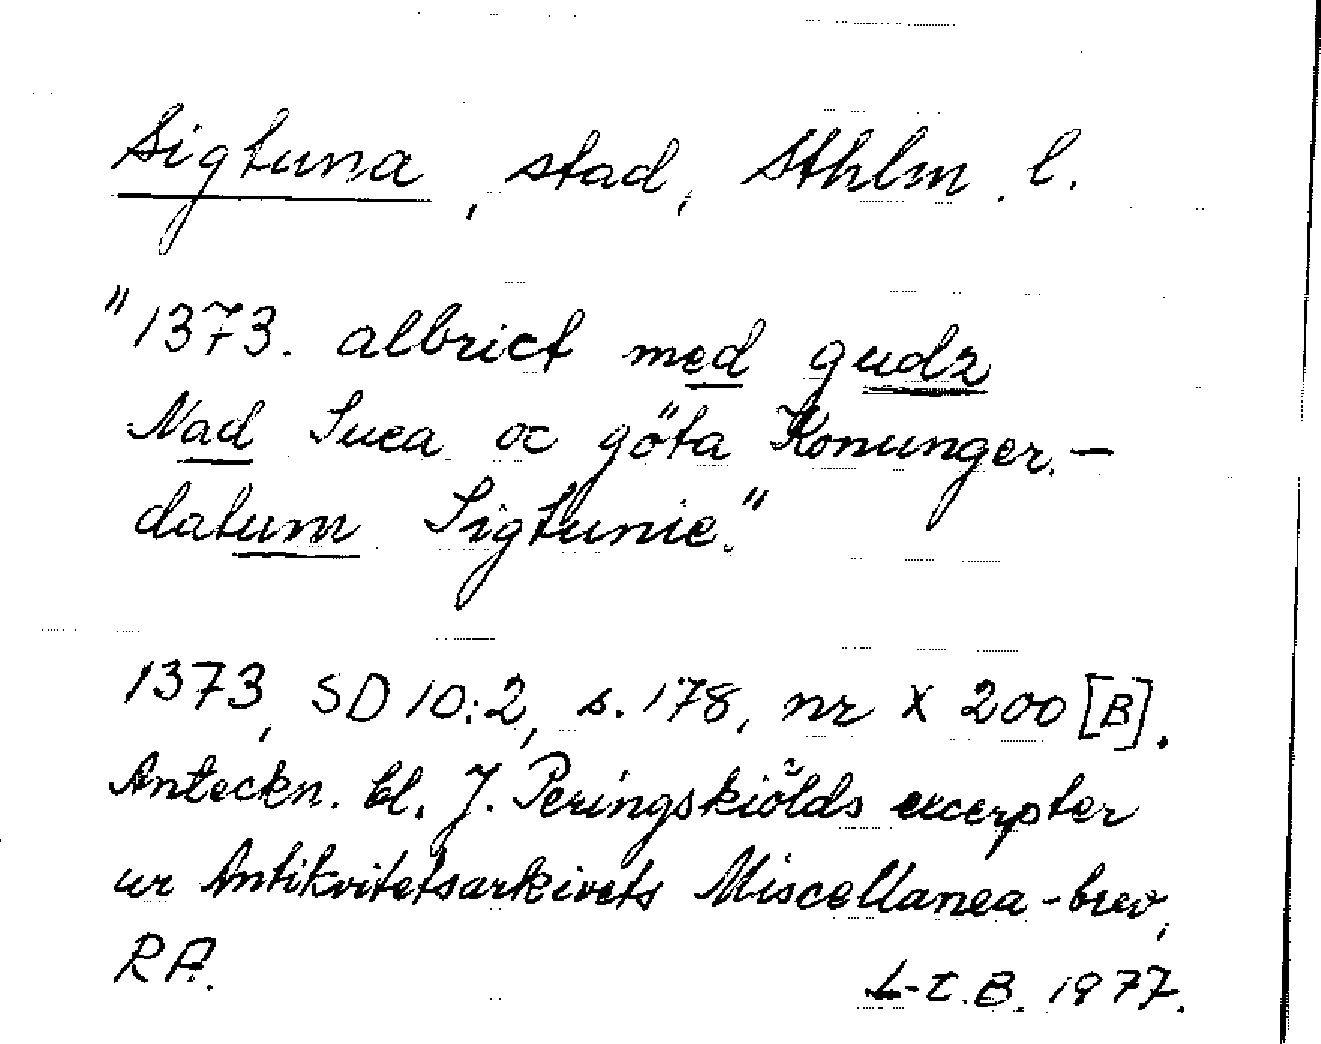 Sigtuna, stad, Sthlm. l.
"1373. albrict med gudz
Nad Suea oc göta Konunger. -
datum Sigtunie."
1373, SD 10:2, s. 178, nr X 200 [B].
Anteckn. bl. J. Peringskiölds excerpter
ur Antikvitetsarkivets Miscellanea-brev,
RA.
L-E.B. 1977.